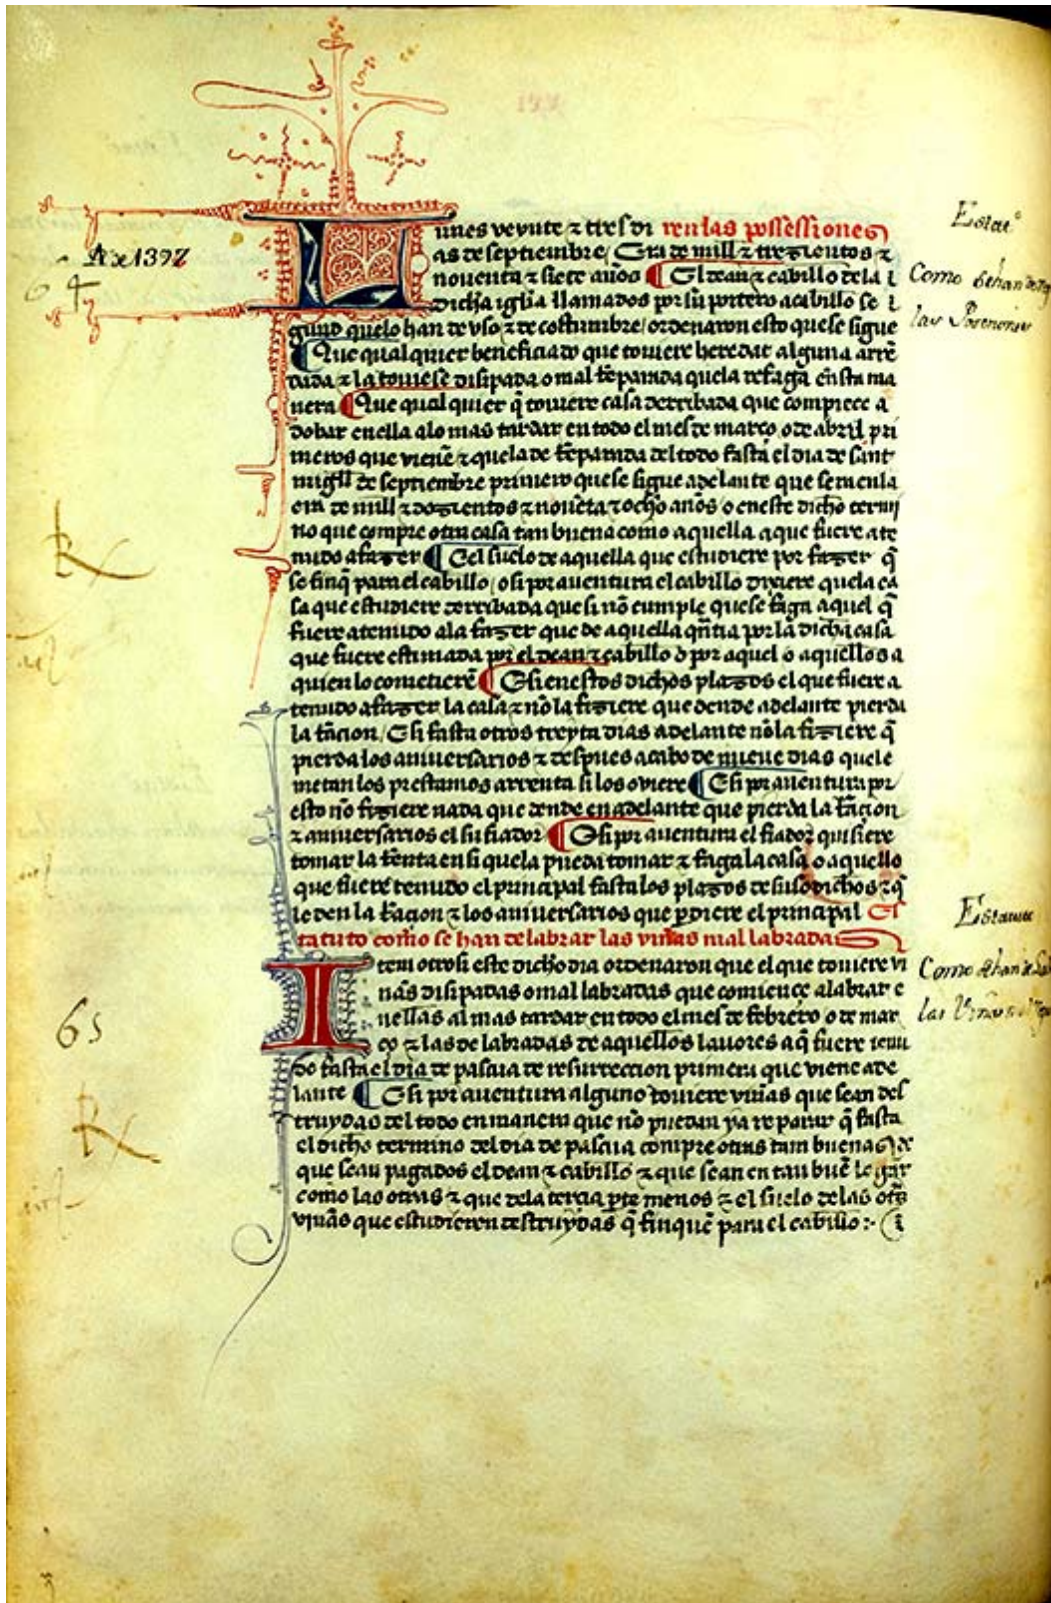 Lunes veynte ⁊ tres di ren las possessiones
as de septiembre Era de mill ⁊ trezientos ⁊
nouenta ⁊ siete años ¶ El dean ⁊ cabillo de la
dicha igl̃ia llamados por su portero a cabillo se
gund que lo han de vso ⁊ de costumbre ordenaron esto que se sigue
¶ Que qual quier beneficiado que touiere heredat alguna arrẽ
dada ⁊ la touiese disipada o mal rẽparada que la refaga en esta ma
nera ¶ Que qual quier q̃ touiere casa derribada que compiece a
dobar en ella a lo mas tardar en todo el mes de março o de abril pri
meros que vienẽ ⁊ que la de rẽparada del todo fasta el dia de sant
migll de septiembre primero que se sigue adelante que sera en la
era de mill ⁊ dozientos ⁊ nouẽta ⁊ ocho años o en este dicho termi
no que compre otra casa tan buena como aquella a que fuere ate
nudo a fazer ¶ E el suelo de aquella que estudiere por fazer q̃
se finq̃ para el cabillo o si por auentura el cabillo dixiere que la ca
sa que estudiere derribada que si nõ cumple que se faga aquel q̃
fuere atenudo a la fazer que de aquella q̃ntia por la dicha casa
que fuere estimada por el dean ⁊ cabillo o por aquel o aquellos a
quien lo cometierẽ ¶ E si en estos dichos plazos el que fuere a
tenudo a fazer la casa ⁊ nõ la fiziere que dende adelante pierda
la rãcion E si fasta otros treyta dias adelante nõ la fiziere q̃
pierda los aniuersarios ⁊ despues acabo de nueue dias que le
metan los prestamos a renta si los ouiere ¶ E si por auentura por
esto nõ fiziere nada que dende en adelante que pierda la rãcion
⁊ aniuersarios el su fiador ¶ E si por auentura el fiador quisiere
tomar la rẽnta en si que la pueda tomar ⁊ faga la casa o aquello
que fuere tenudo el principal fasta los plazos de suso dichos ⁊ q̃
le den la rãcion ⁊ los aniuersarios que pdiere el principal Es
tatuto como se han de labrar las viñas mal labradas
Item otrosi este dicho dia ordenaron que el que touiere vi
nãs disipadas o mal labradas que comiençe a labrar e
nellas al mas tardar en todo el mes de febrero o de mar
ço ⁊ las de labradas de aquellos lauores a q̃ fuere tenu
do fasta el dia de pascua de resurreccion primera que viene ade
lante ¶ E si por auentura alguno touiere viñas que sean des
truydas del todo en manera que nõ puedan ya reparar q̃ fasta
el dicho termino del dia de pascua compre otras tam buenas de
que sean pagados el dean ⁊ cabillo ⁊ que sean en tan buẽ logar
como las otras ⁊ que de la tercia pte menos ⁊ el suelo de las otᵃs
vinãs que estudieren destruydas q̃ finquẽ para el cabillo :-
A de 1397
64
65
Estatᵒ
Como se han de
las Posesiones
Estatuto
Como se han de
las Viñas